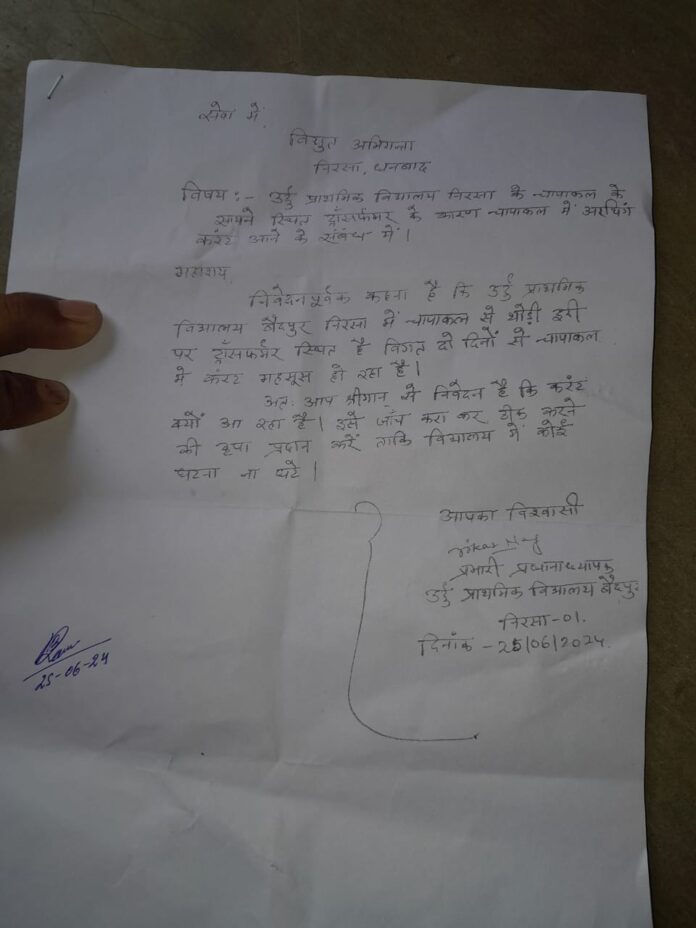 सेवा में,
विद्युत अभियन्ता
निरसा, धनबाद
विषय :- उर्दु प्राथमिक विद्यालय निरसा के चापाकल के
सामने स्थित ट्राँसफर्मर के कारण चापाकल में अरथिंग
करंट आने के संबंध में।
महाशय,
निवेदनपूर्वक कहना है कि उर्दु प्राथमिक
विद्यालय बैदपुर निरसा में चापाकल से थोड़ी दुरी
पर ट्राँसफर्मर स्थित है विगत दो दिनों से चापाकल
में करंट महसूस हो रहा है।
अतः आप श्रीमान् से निवेदन है कि करंट
क्यों आ रहा है। इसे जाँच करा कर ठीक करने
की कृपा प्रदान करें ताकि विद्यालय में कोई
घटना ना घटे।
आपका विश्वासी
प्रभारी प्रधानाध्यापक
उर्दु प्राथमिक विद्यालय बैदपुर
निरसा-01.
दिनांक - 25/06/2024.
25-06-24